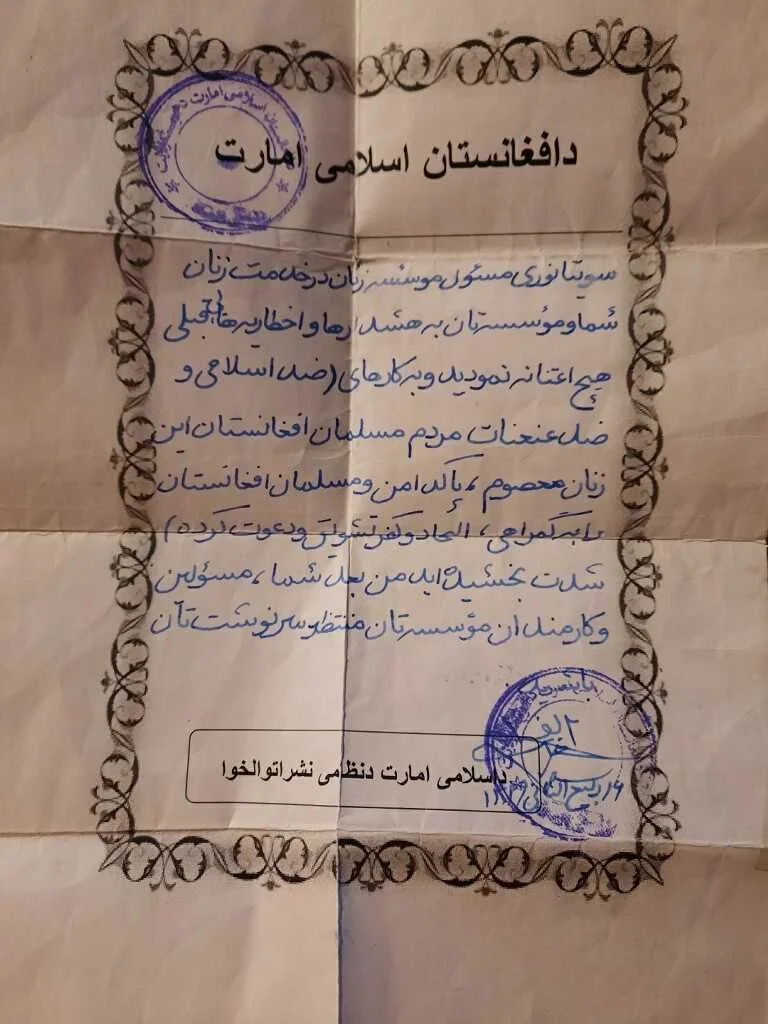 دافغانستان اسلامی امارت
سویتا نوری مسئول موسسه زنان در خدمت زنان
شما و مؤسسه تان به هشدارها و اخطاریه های قبلی
هیچ اعتنا نه نمودید و به کارهای (ضد اسلامی و
ضد عنعنات مردم مسلمان افغانستان این
زنان معصوم ، پاکدامن و مسلمان افغانستان
را به گمراهی ، الحاد و کفر تشویق و دعوت کرده)
شدت بخشیده اید من بعد شما ، مسؤلین
و کارمندان مؤسسه تان منتظر سرنوشت تان
داسلامی امارت دنظامی نشراتوالخوا